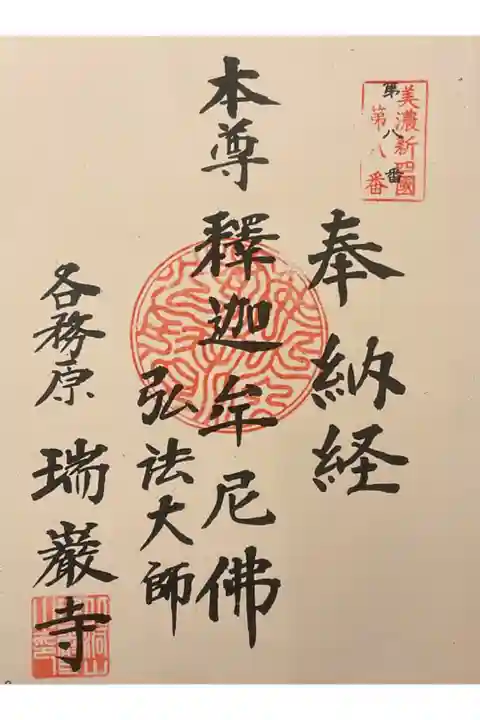 美濃新四國
第八番
第八番
奉納経
本尊 釋迦牟尼佛
弘法大師
各務原 瑞巌寺